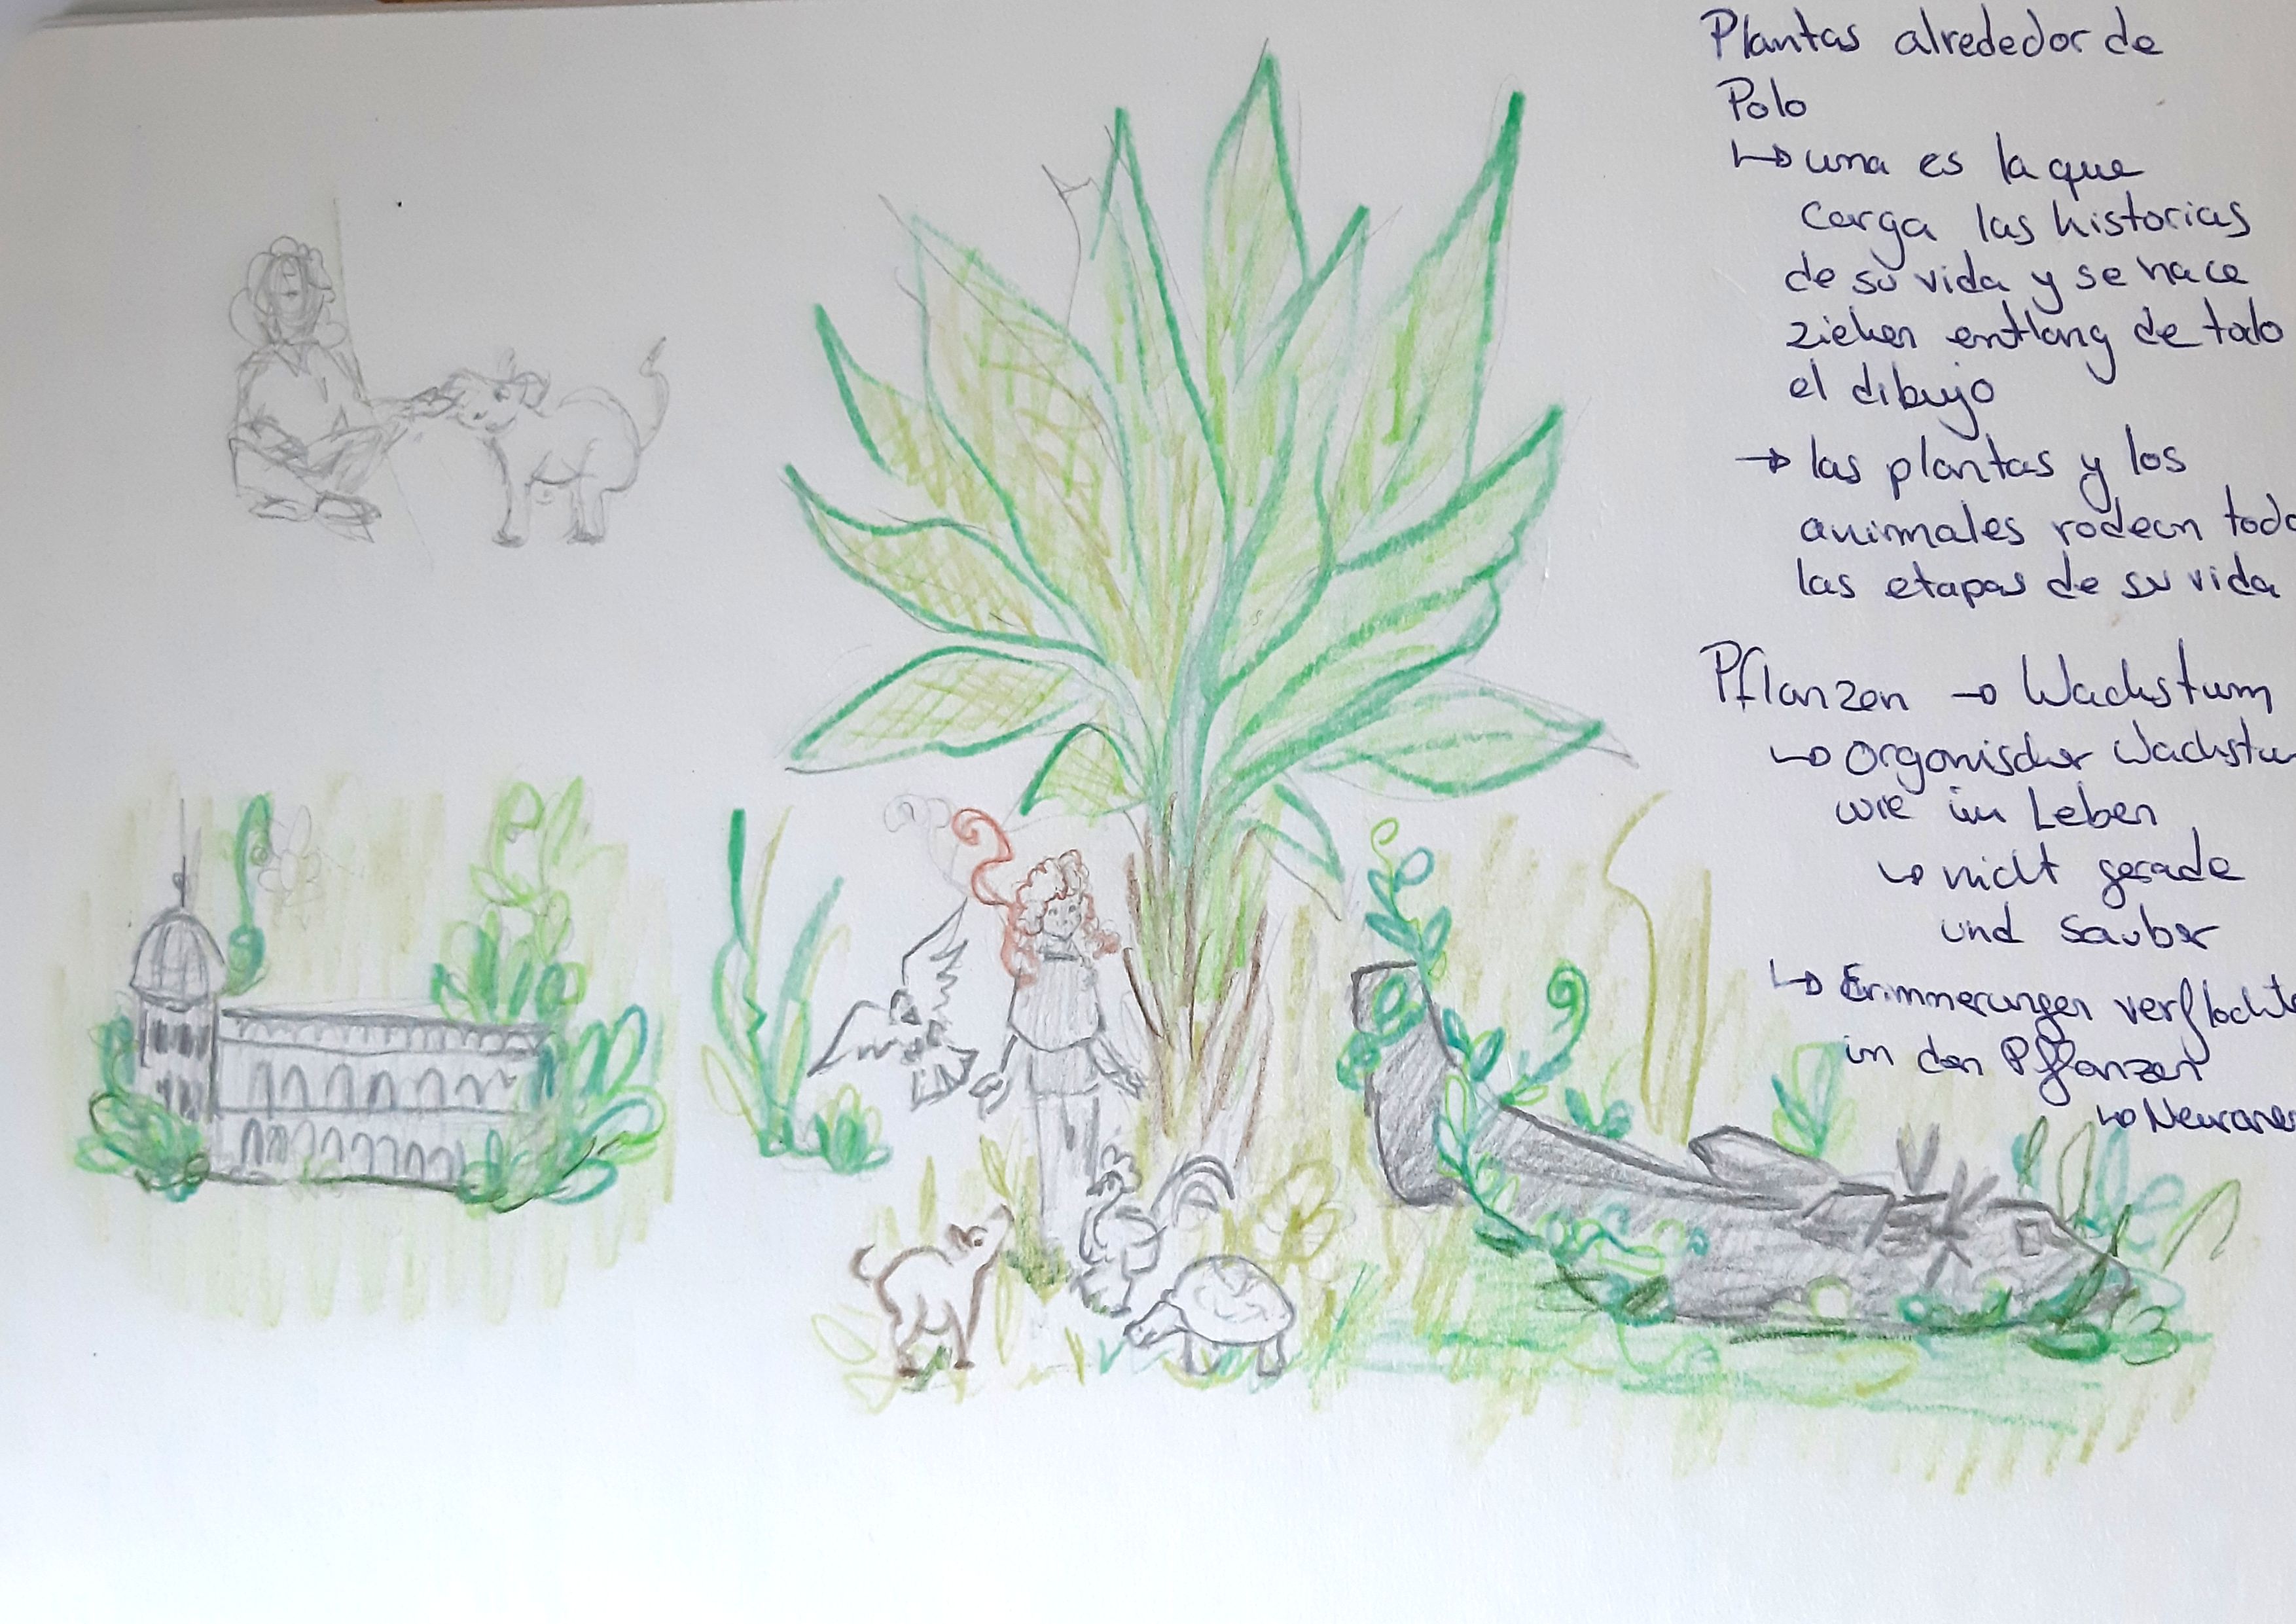 Plantas alrededor de
Polo
↳ una es la que
carga las historias
de su vida y se hace
ziehen entlang de todo
el dibujo
→ las plantas y los
animales rodean todo
las etapas de su vida
Pflanzen → Wachstum
↳ Organischer Wachstu
wie im Leben
↳ nicht gerade
und sauber
↳ Erinnerungen verflochte
in den Pflanzen
↳ Neurone